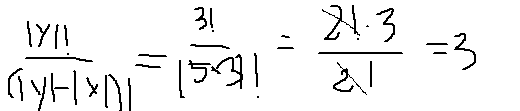 |Y|! / (|Y|-|X|)! = 3! / |5-3|! = 2!·3 / 2! = 3